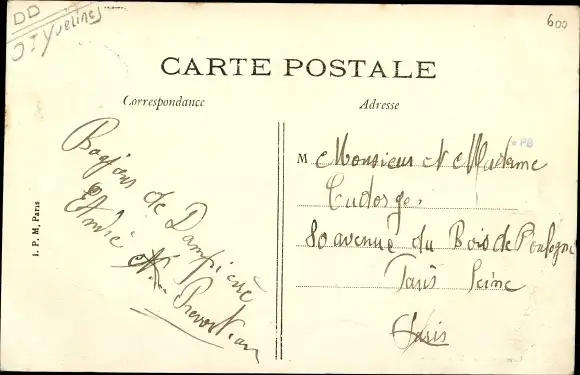 DD
Yvelines
600
CARTE POSTALE
Correspondance
Adresse
PB
I. P. M, Paris
Bonjour de Dampierre
M Monsieur et Madame
80 avenue du Bois de Boulogne
Paris Seine
Paris